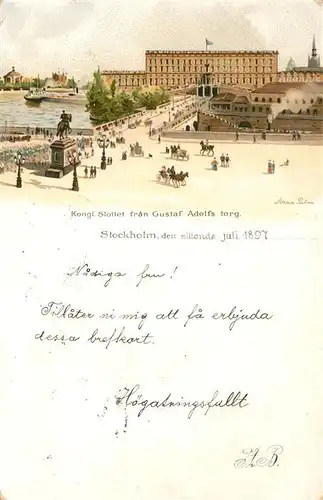 Anna Palm
Kongl. Slottet från Gustaf Adolfs torg.
Stockholm, den juli 1897
Nådiga fru!
Tillåter ni mig att få erbjuda
dessa brefkort.
Högaktningsfullt
A. B.